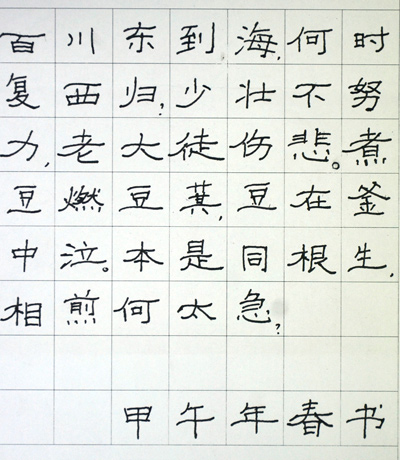 百川东到海,何时
复西归?少壮不努
力,老大徒伤悲。煮
豆燃豆萁,豆在釜
中泣。本是同根生,
相煎何太急?
甲午年春书